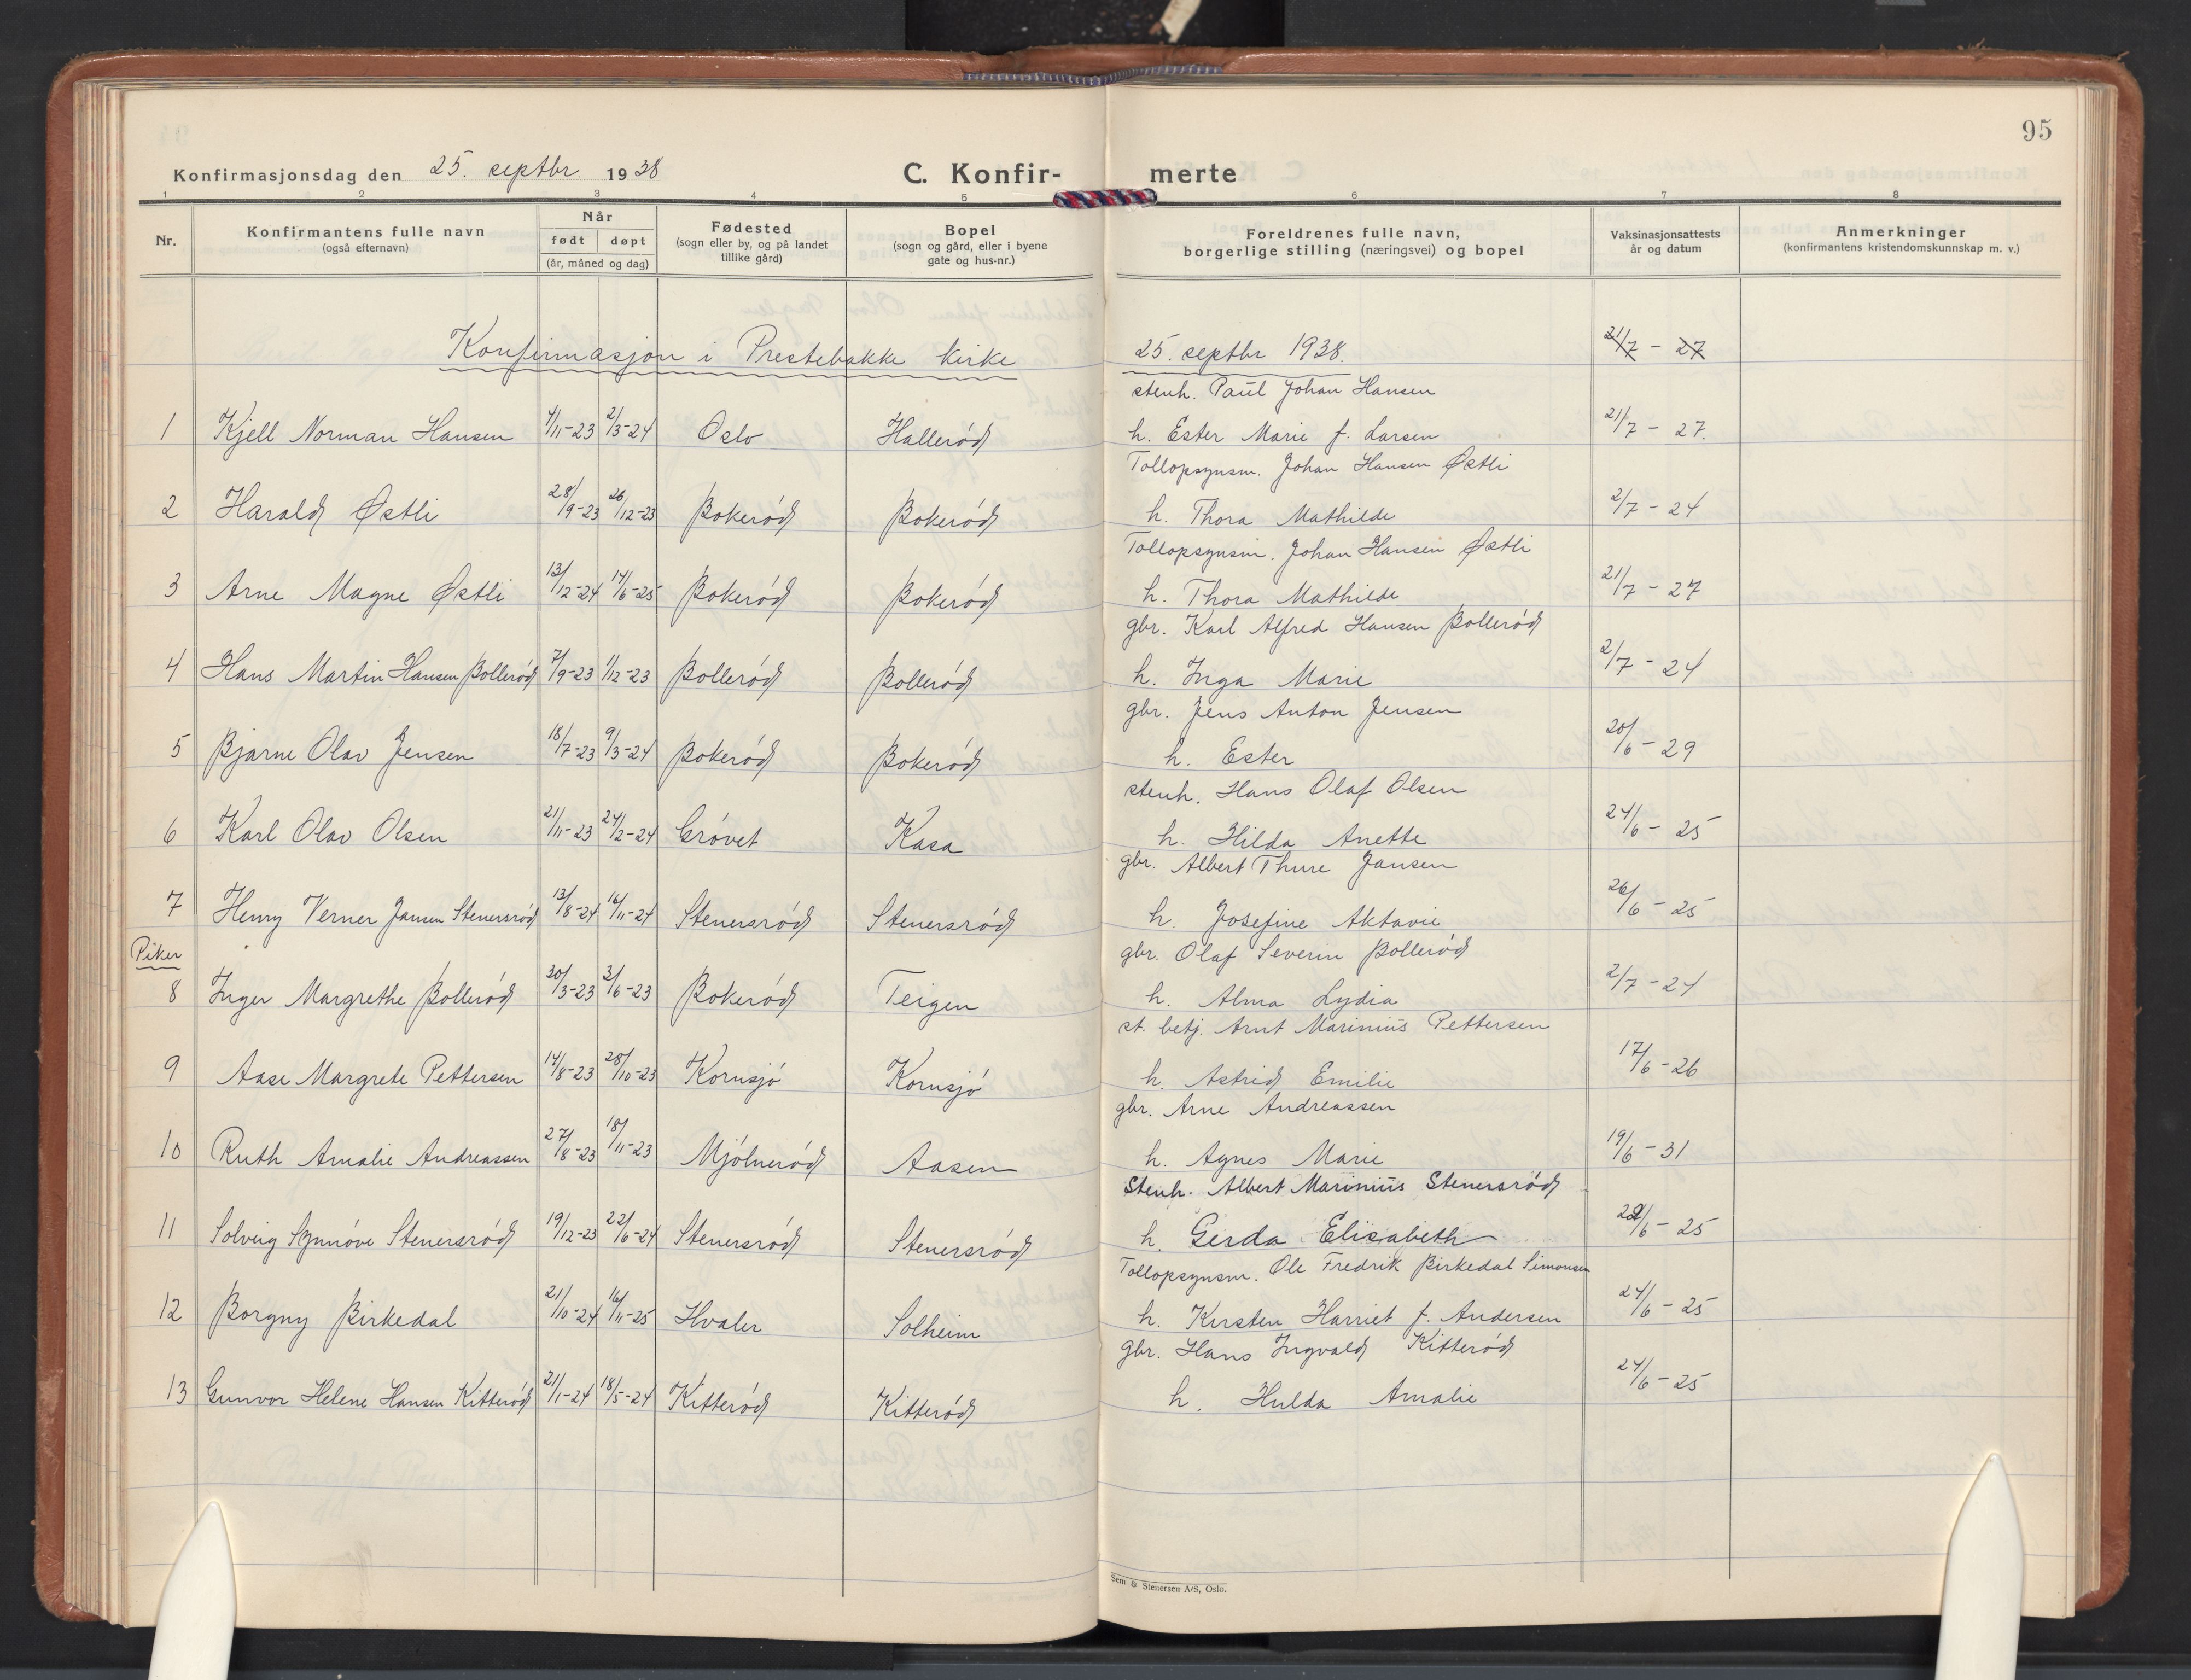 95
Konfirmasjonsdag den 25. septbr. 1938
C. Konfir- merte
1 2 3 4 5 6 7 8
Nr.
Konfirmantens fulle navn
(også efternavn)
Når
født døpt
(år, måned og dag)
Fødested
(sogn eller by, og på landet
tillike gård)
Bopel
(sogn og gård, eller i byene
gate og hus-nr.)
Foreldrenes fulle navn,
borgerlige stilling (næringsvei) og bopel
Vaksinasjonsattests
år og datum
Anmerkninger
(konfirmantens kristendomskunnskap m. v.)
Konfirmasjon i Prestebakke kirke 25. septbr 1938. 21/7 - 27
stenh. Paul Johan Hansen
1 Kjell Norman Hansen 4/11-23 2/3-24 Oslo Halleröd h. Ester Marie f. Larsen 21/7 - 27.
Tollopsynsm. Johan Hansen Østli
2 Harald Østli 28/9-23 26/12-23 Bokeröd Bokeröd h. Thora Mathilde 2/7 - 24
Tollopsynsm. Johan Hansen Østli
3 Arne Magne Østli 13/12-24 14/6-25 Bokeröd Bokeröd h. Thora Mathilde 21/7 - 27
gbr. Karl Alfred Hansen Bolleröd
4 Hans Martin Hansen Bolleröd 7/9-23 1/12-23 Bolleröd Bolleröd h. Inga Marie 2/7 - 24
gbr. Jens Anton Jensen
5 Bjarne Olav Jensen 18/7-23 9/3-24 Bokeröd Bokeröd h. Ester 20/6 - 29
stenh. Hans Olaf Olsen
6 Karl Olav Olsen 21/11-23 24/2-24 Grövet Kasa h. Hilda Anette 24/6 - 25
gbr. Albert Thure Jansen
7 Henry Verner Jansen Stenersröd 13/8-24 16/11-24 Stenersröd Stenersröd h. Josefine Aktavie 26/6 - 25
Piker
gbr. Olaf Severin Bolleröd
8 Inger Margrethe Bolleröd 30/3-23 3/6-23 Bokeröd Teigen h. Alma Lydia 2/7 - 24
st. betj. Arnt Marinius Pettersen
9 Aase Margrete Pettersen 14/8-23 28/10-23 Kornsjö Kornsjö h. Astrid Emilie 17/6 - 26
gbr. Arne Andreassen
10 Ruth Amalie Andreassen 27/8-23 18/11-23 Mjölneröd Aasen h. Agnes Marie 19/6 - 31
Stenh. Albert Marinius Stenersröd
11 Solveig Synnöve Stenersröd 19/12-23 22/6-24 Stenersröd Stenersröd h. Gerda Elisabeth /6 - 25
Tollopsynsm. Ole Fredrik Birkedal Simonsen
12 Borgny Birkedal 21/10-24 16/11-25 Hvaler Solheim h. Kirsten Harriet f. Andersen 24/6 - 25
gbr. Hans Ingvald Kitteröd
13 Gunvor Helene Hansen Kitteröd 21/1-24 18/5-24 Kitteröd Kitteröd h. Hulda Amalie 24/6 - 25
Sem & Stenersen A/S, Oslo.